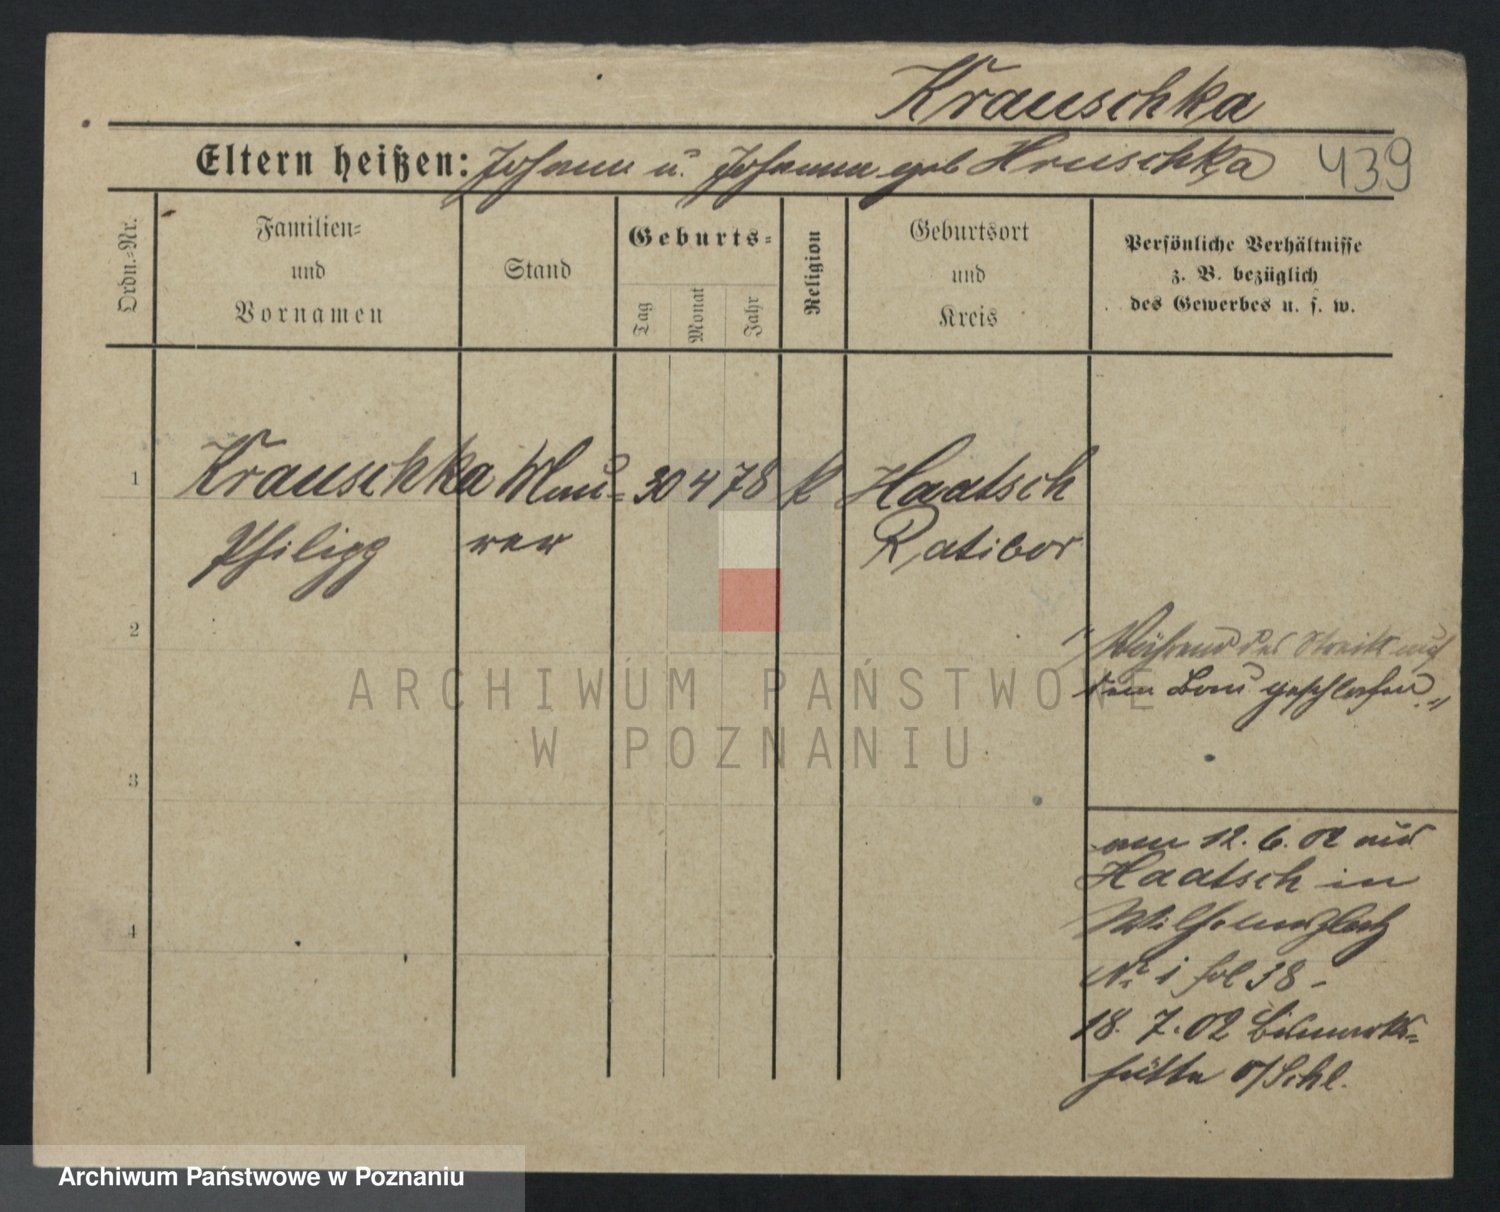 Krauschka
Eltern heißen: Johann u. Johanna geb Hruschka 439
Ordn.-Nr.
Familien-
und
Vornamen
Stand
Geburts-
Tag
Monat
Jahr
Religion
Geburtsort
und
Kreis
Persönliche Verhältnisse
z. B. bezüglich
des Gewerbes u. s. w.
1 Krauschka Mau- 30 4 78 k Haatsch
Philipp rer Ratibor
2
"Während des Streik auf
dem Bau geschlafen."
3
am 12. 6. 02 aus
Haatsch in
4
No 1 fol 38 -
18. 7. 02 Bismarks-
hütte O/Schl.
ARCHIWUM PAŃSTWOWE
W POZNANIU
Archiwum Państwowe w Poznaniu